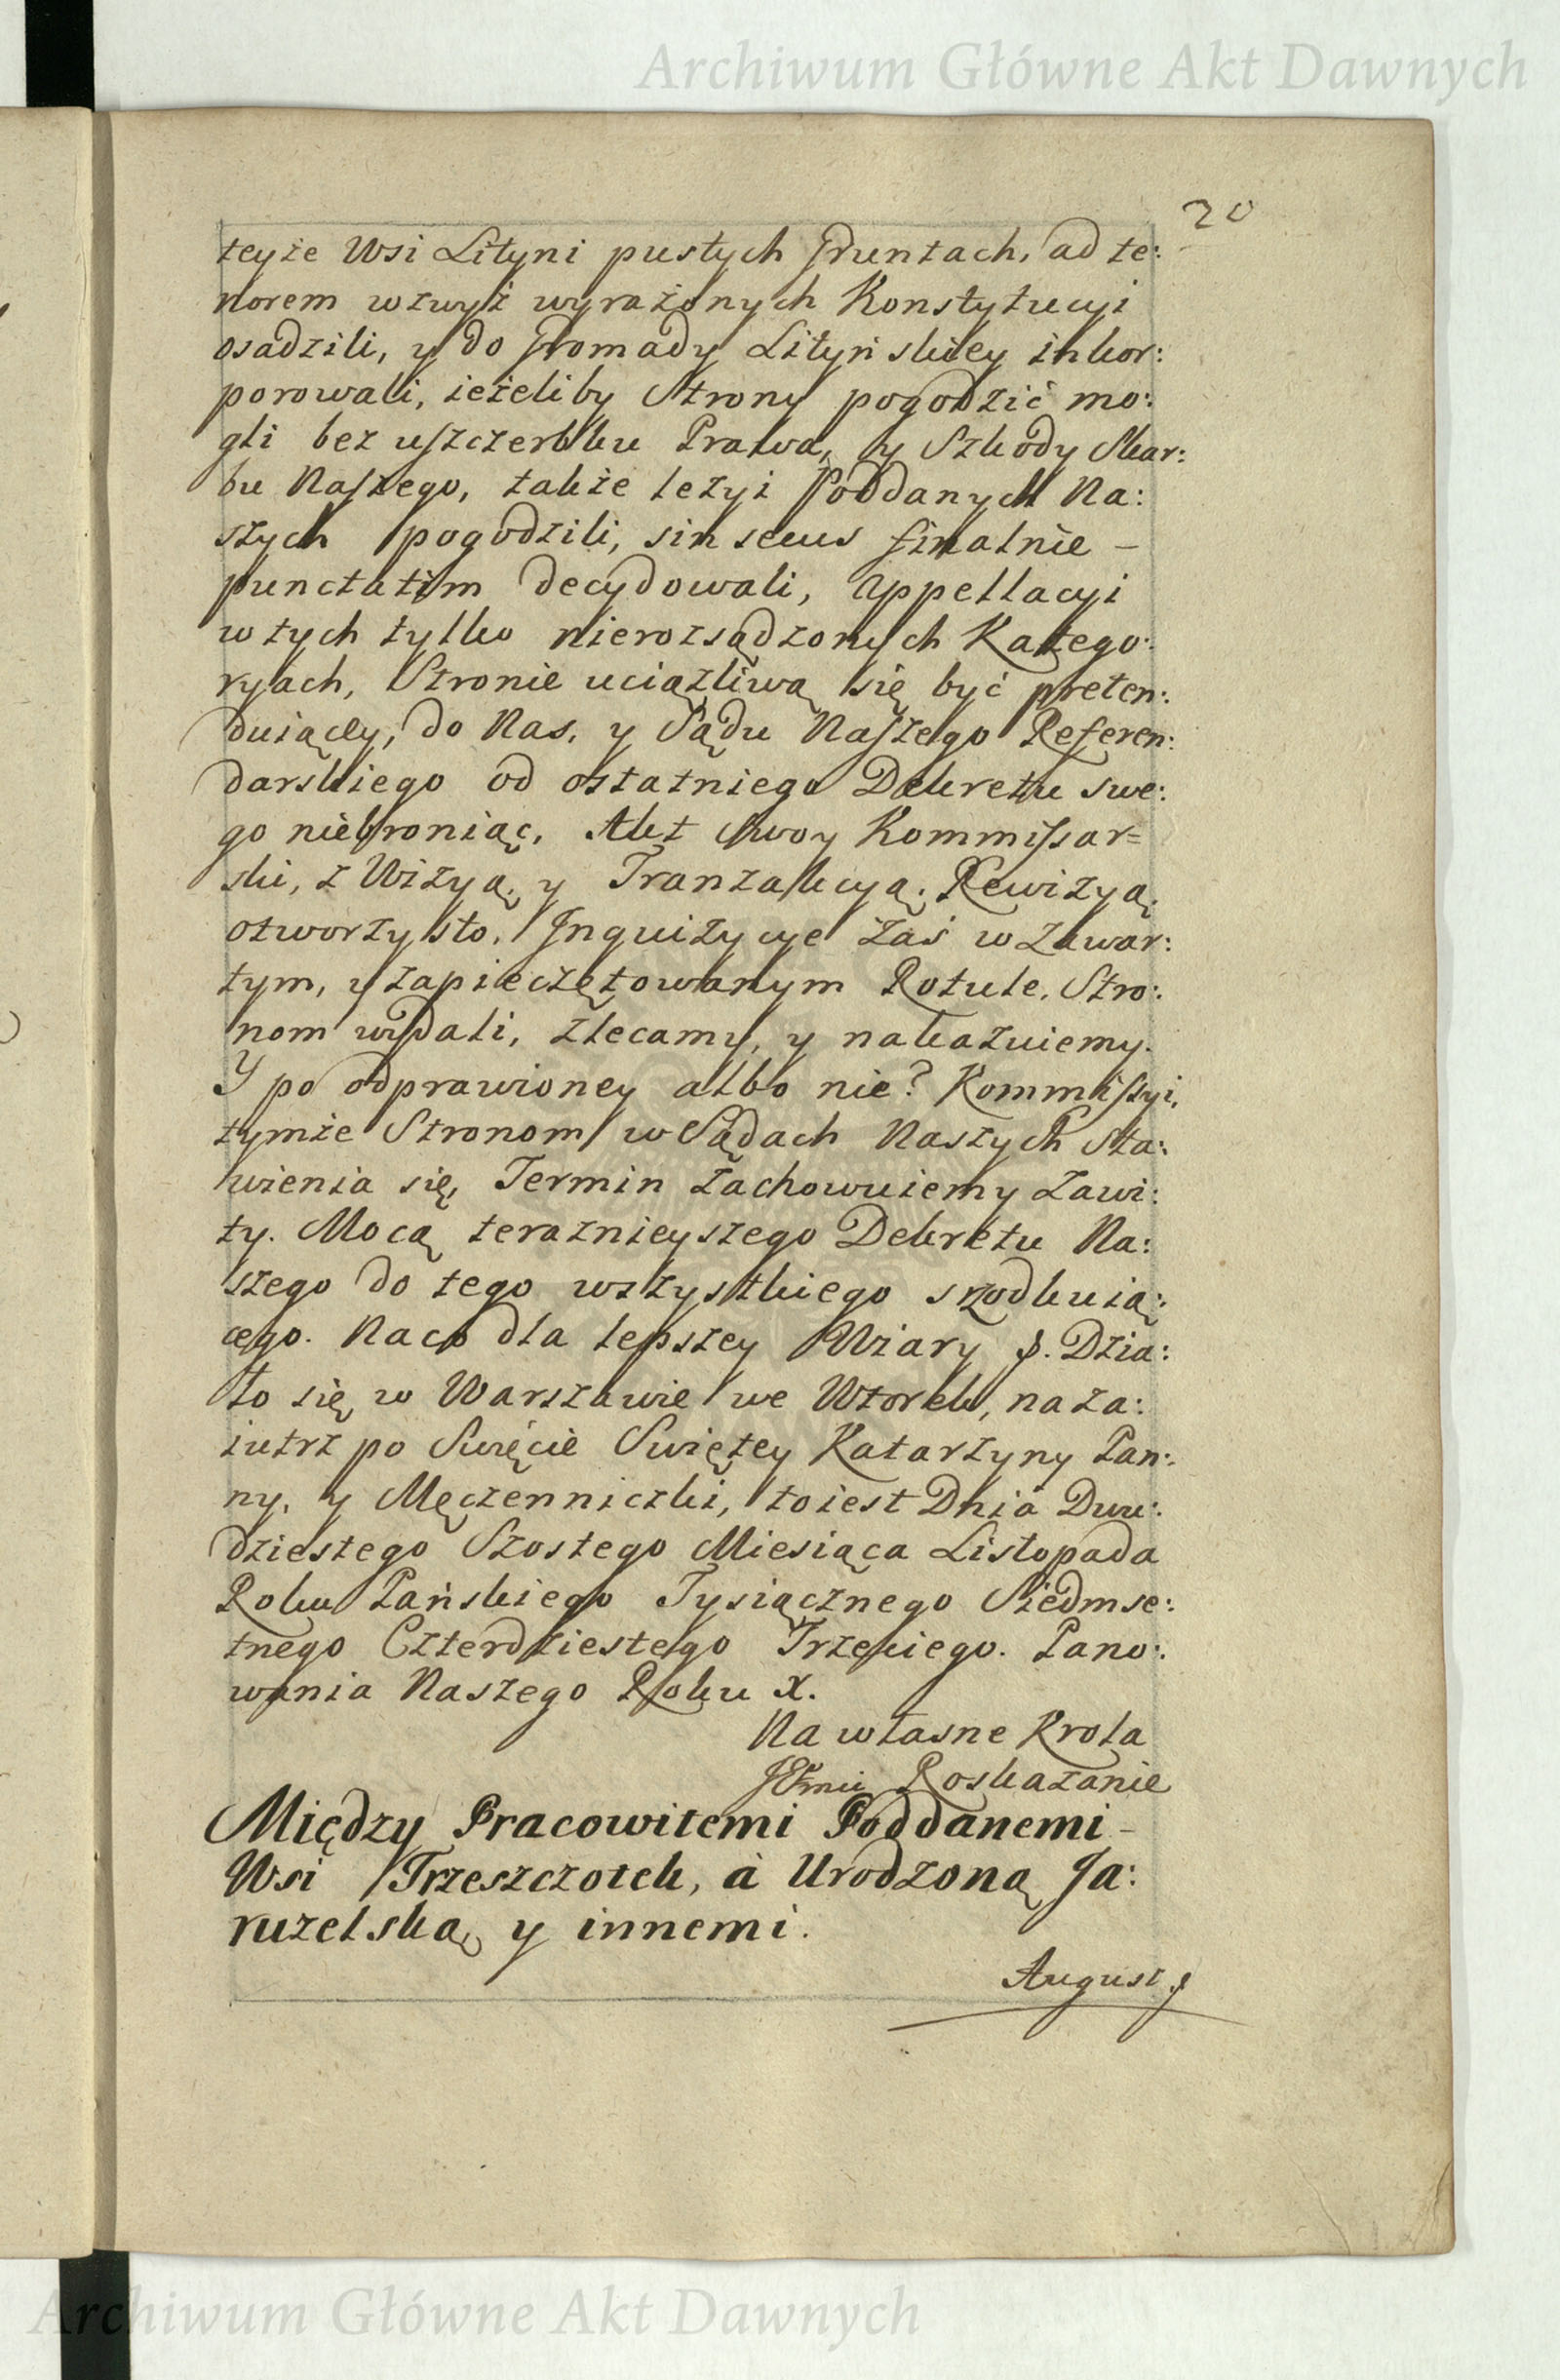 Archiwum Główne Akt Dawnych
20
teyże Wsi Lityni pustych Gruntach, ad te:
norem wzwyż wyrażonych Konstytucyi
osadzili, y do Gromady Lityńskiey inkor:
porowali, ieżeliby Strony pogodzić mo:
gli bez uszczerbku Prawa, y Szkody Skar:
bu Naszego, także tezyi Poddanych Na:
szych pogodzili, sin secus finalnie –
punctatim decydowali, Appellacyi
w tych tylko nierozsądzonych Katego:
ryach, Stronie uciążliwą się być preten:
duiącey, do Nas, y Sądu Naszego Referen:
darskiego od ostatniego Dekretu swe:
go niebroniąc, Akt swoy Kommissar=
ski, z Wizyą, y Tranzakcyą, Rewizyą
otworzysto, Inquizycye zaś w zawar:
tym, y zapieczętowanym Rotule, Stro:
nom wydali, zlecamy, y nakazuiemy.
Y po odprawioney albo nie? Kommissyi,
tymże Stronom w Sądach Naszych Sta:
wienia się, Termin zachowuiemy zawi:
ty. Mocą terazнieyszego Dekretu Na:
szego do tego wszystkiego srzodkuią:
cego. Na co dla lepszey Wiary &. Dzia:
ło się w Warszawie we Wtorek, naza:
iutrz po Swięcie Swiętey Katarzyny Pan:
ny, y Męczenniczki, to iest Dnia Dwu:
dziestego Szostego Miesiąca Listopada
Roku Pańskiego Tysiącznego Siedmse:
tnego Czterdziestego Trzeciego. Pano:
wania Naszego Roku X.
Na własne Krola
JEmci Roskazanie
Między Pracowitemi Poddanemi –
Wsi Trzeszczotek, á Urodzoną Ja:
ruzelską y innemi.
August &
Archiwum Główne Akt Dawnych